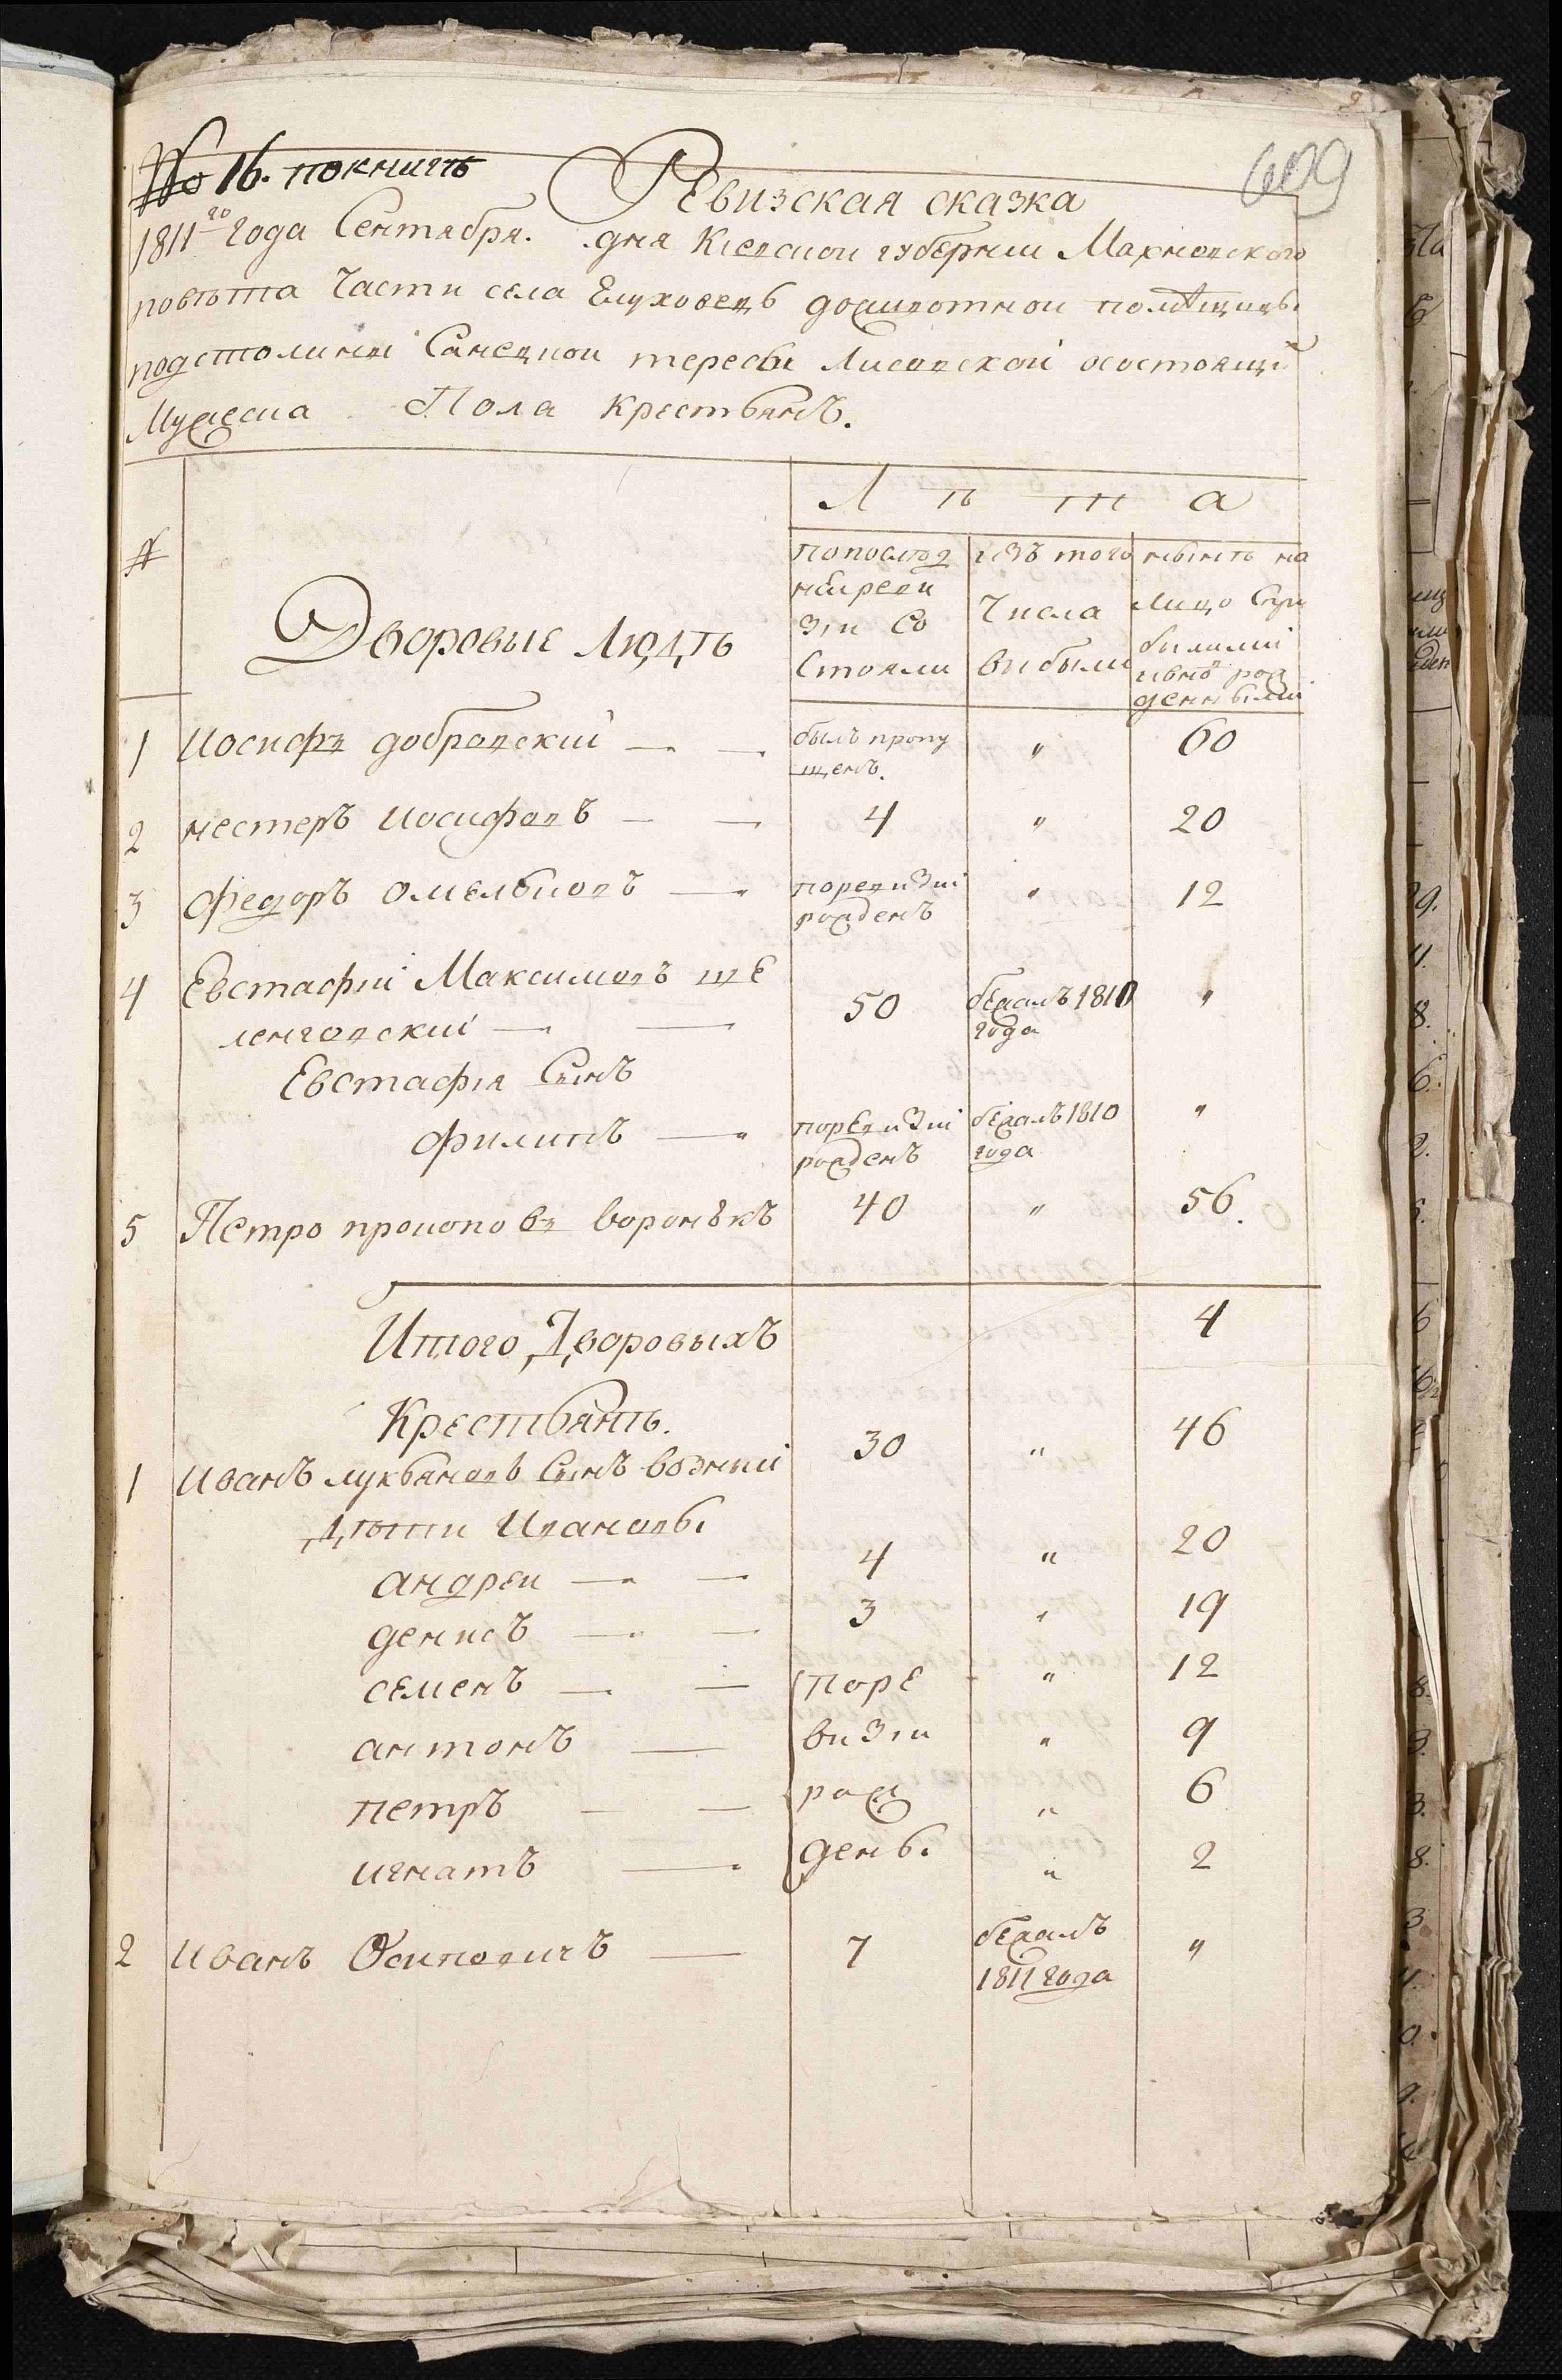 № 16. покнигѣ
609
Ревизская сказка
1811го года Сентября. дня Кіевской губерніи Махновского
повѣта Части села Глуховецъ доживотной помѣщицы
подстолиной Терезы Лисовской осостоящихъ
Мужеска Пола крестьянъ.
№
Дворовые Людѣ
Л ѣ т а
попослѣд
нѣй реви
зіи Со
Стояли
изъ того
Числа
выбыли
нынѣ на
лицоСпри
былыми
ивно рож
денными
1 Иосифъ добровский был пропу щенъ. " 60
2 нестеръ иосифовъ 4 " 20
3 федоръ омельковъ поревизіи рожденъ " 12
4 Евстафій Максимовъ ще
ленговский 50 бѣжалъ 1810 года "
Евстафія Сынъ
филипъ поревизіи рожденъ бѣжалъ 1810 года "
5 Петро прокоповъ воронѣкъ 40 " 56.
Итого Дворовыхъ 4
Крестьянѣ.
1 Иванъ лукьяновъ Сынъ водный 30 " 46
Дѣти Ивановы
андреи 4 " 20
денисъ 3 " 19
семенъ поре " 12
антонъ визіи " 9
петръ рож " 6
игнатъ дены " 2
2 Иванъ Осиповичъ 7 бѣжалъ 1811 года "